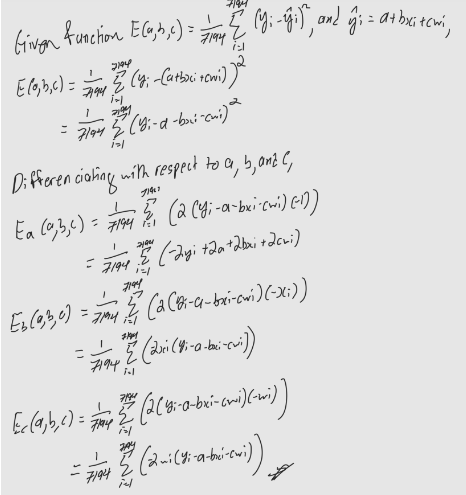 Given function E(a,b,c) = 1/7194 7194Σi=1 (yi - ŷi)², and ŷi = a+bxi+cwi,
E(a,b,c) = 1/7194 7194Σi=1 (yi - (a+bxi+cwi))²
= 1/7194 7194Σi=1 (yi - a - bxi - cwi)²
Differenciating with respect to a, b, and c,
Ea (a,b,c) = 1/7194 7194Σi=1 (2 (yi - a - bxi - cwi) (-1))
= 1/7194 7194Σi=1 (-2yi + 2a + 2bxi + 2cwi)
Eb (a,b,c) = 1/7194 7194Σi=1 (2 (yi - a - bxi - cwi) (-xi))
= 1/7194 7194Σi=1 (2xi (yi - a - bxi - cwi))
Ec (a,b,c) = 1/7194 7194Σi=1 (2 (yi - a - bxi - cwi) (-wi))
= 1/7194 7194Σi=1 (-2wi (yi - a - bxi - cwi))